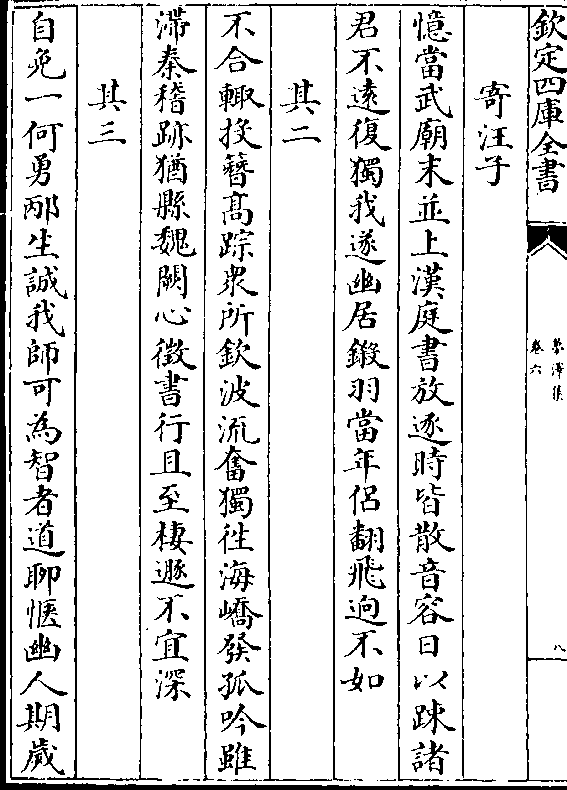 欽定四庫全書
夢澤集
卷六
八
寄汪子
憶當武廟末並上漢庭書放逐時皆散音容日以踈諸
君不遠復獨我遂幽居鍛羽當年侣翻飛逈不如
其二
不合輙投簪髙踪衆所欽波流奮獨徃海嶠發孤吟雖
滯秦稽跡猶縣魏闕心徵書行且至棲遯不宜深
其三
自免一何勇邴生誠我師可為智者道聊愜幽人期歲